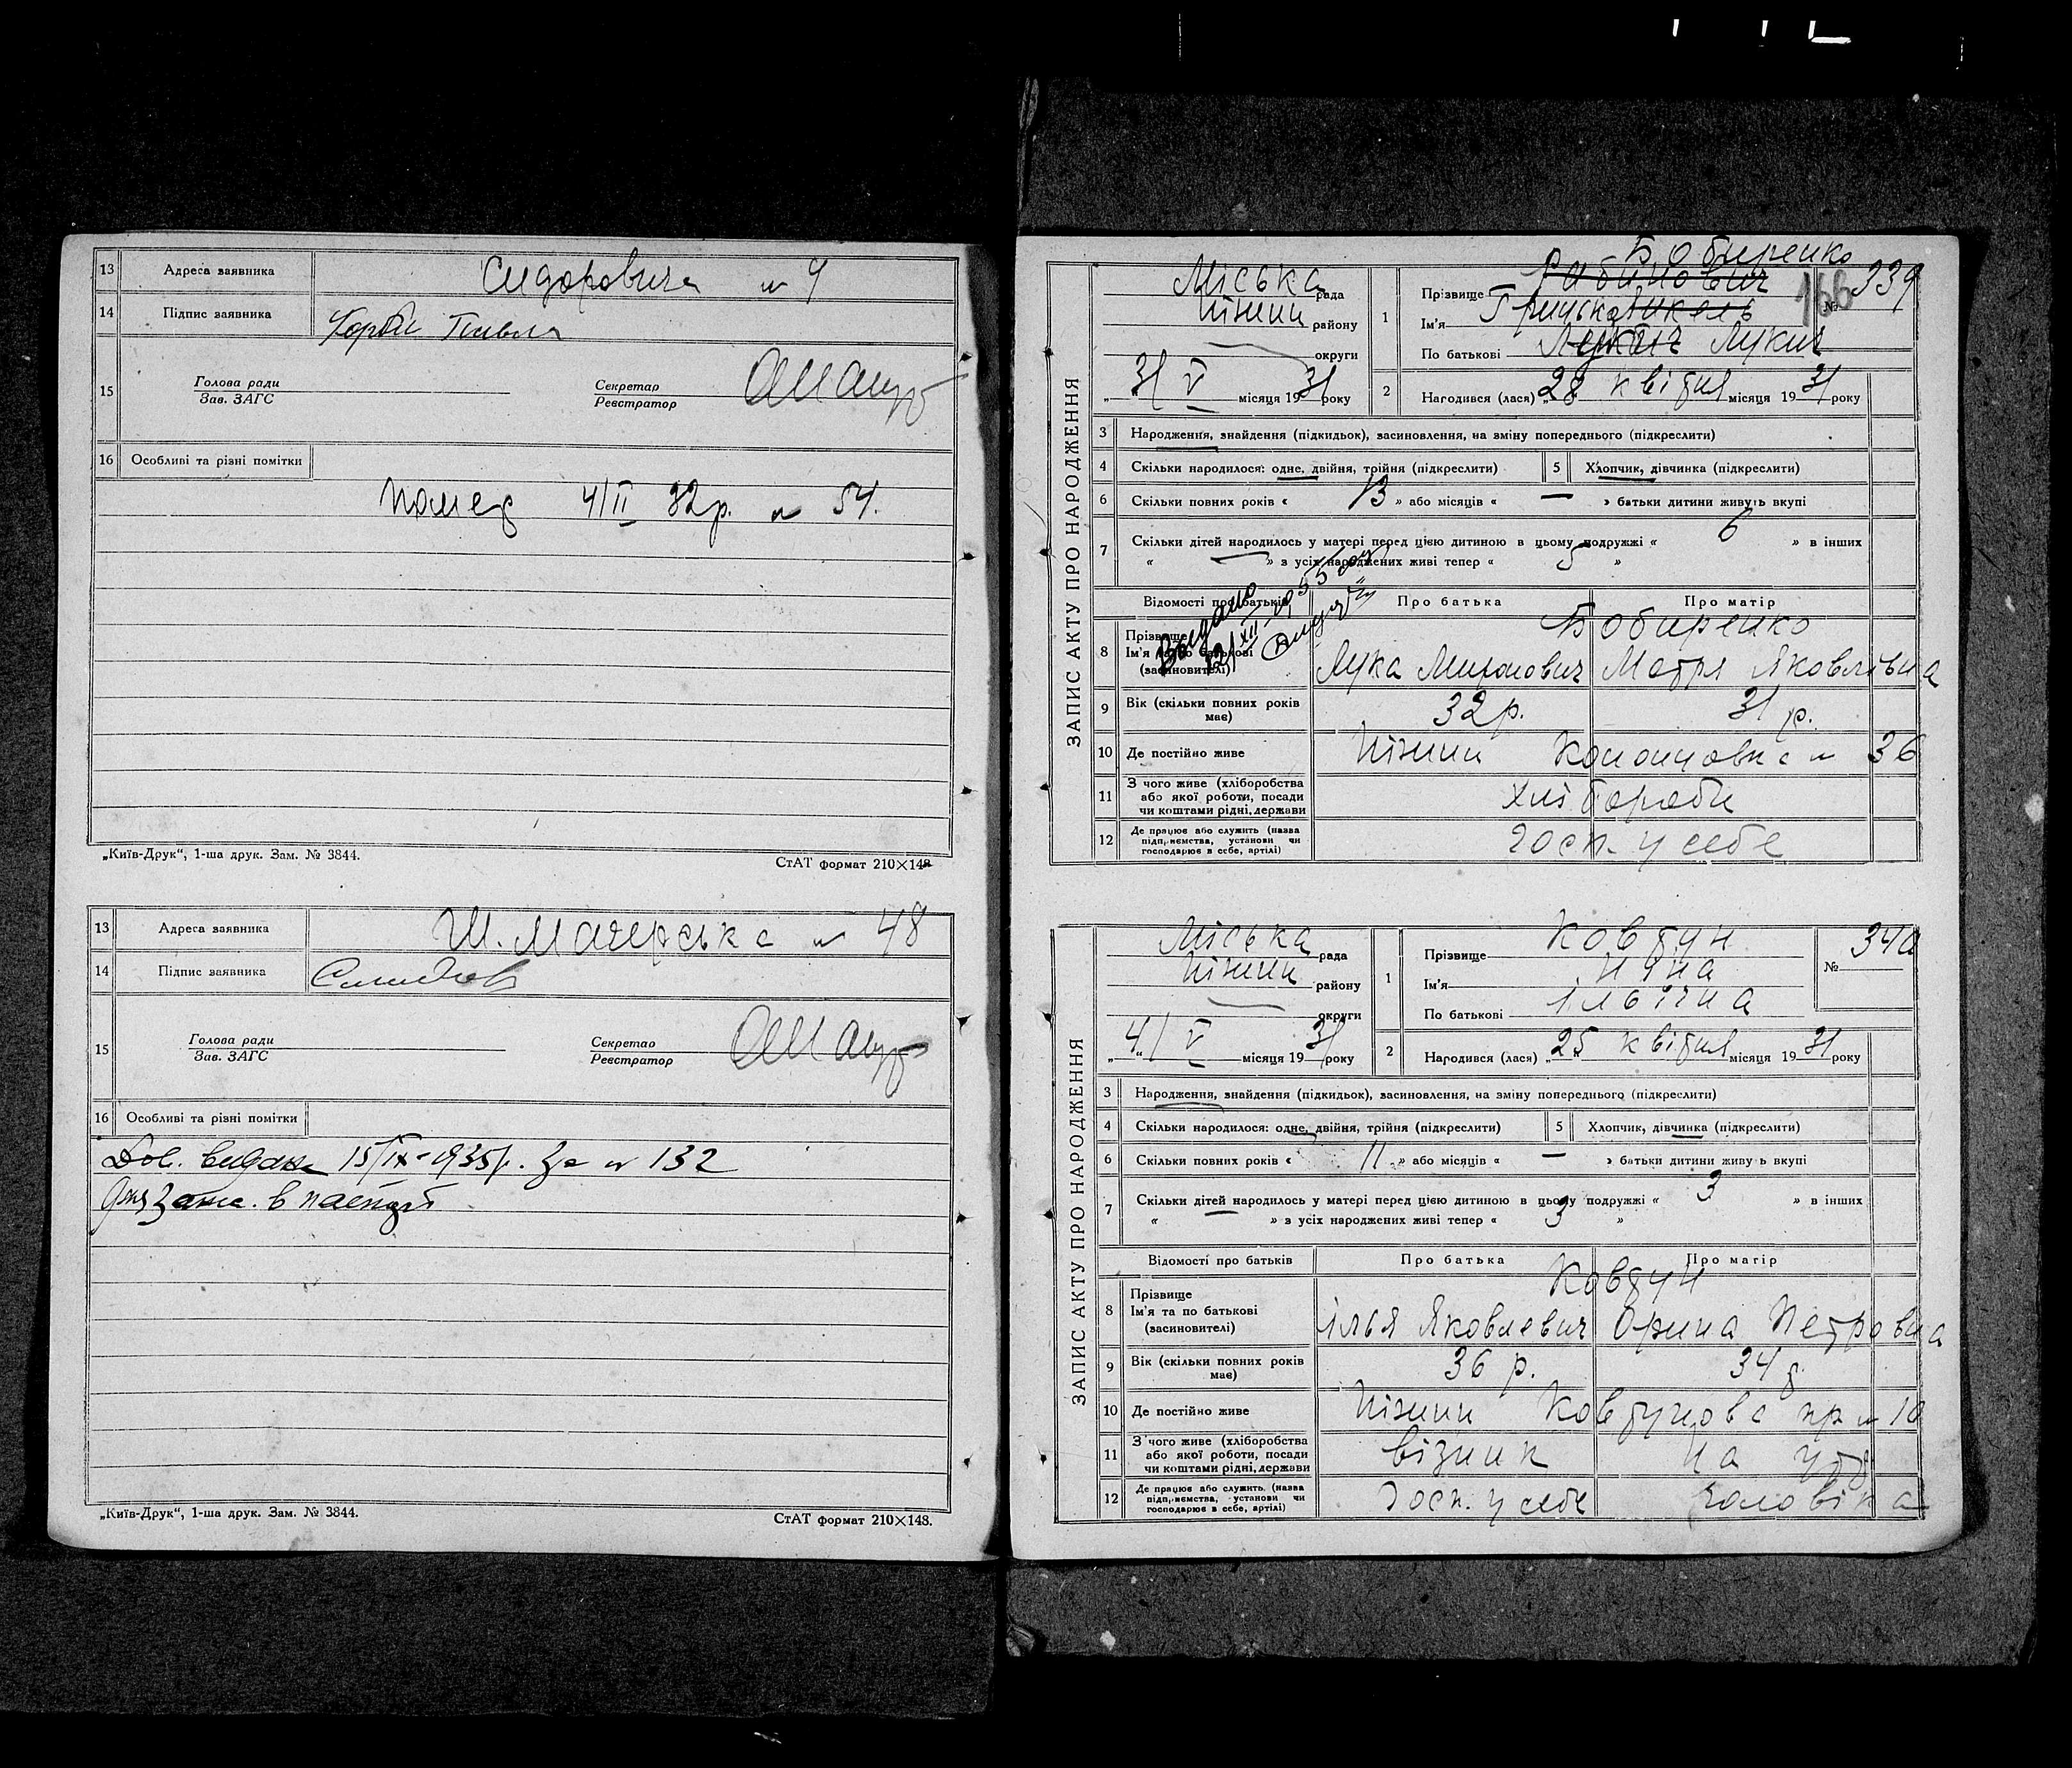 13 Адреса заявника Сидоровича № 4
14 Підпис заявника
15 Голова ради Секретар
Зав. ЗАГС Реєстратор
16 Особливі та різні помітки
Помер 4/II 32р. № 54.
„Київ-Друк“, 1-ша друк. Зам. № 3844. СтАТ формат 210×148
13 Адреса заявника № 48
14 Підпис заявника
15 Голова ради Секретар
Зав. ЗАГС Реєстратор
16 Особливі та різні помітки
Дов. видана 15/IX-1935р. За № 132
„Київ-Друк“, 1-ша друк. Зам. № 3844. СтАТ формат 210×148.
ЗАПИС АКТУ ПРО НАРОДЖЕННЯ
Міська рада
Ніжин району
округи
„31 V місяця 1931 року
Бобиренко
1 Прізвище Рабинович
166 № 339
Ім'я Грицько
По батькові Лукич
2 Народився (лася) „28 квітня місяця 1931 року
3 Народження, знайдення (підкидьок), засиновлення, на зміну попереднього (підкреслити)
4 Скільки народилося: одне, двійня, трійня (підкреслити) 5 Хлопчик, дівчинка (підкреслити)
6 Скільки повних років « 13 » або місяців « — » батьки дитини живуть вкупі
7 Скільки дітей народилось у матері перед цією дитиною в цьому подружжі « 6 » в інших
« — » з усіх народжених живі тепер « 5 »
Відомості про батьків Про батька Про матір
Видано
12/XII
8 Прізвище Бобиренко
Ім'я та по батькові Лука Миронович Мотря Яковлівна
(засиновителі)
9 Вік (скільки повних років має) 32 р. 31 р.
10 Де постійно живе Ніжин № 36
11 З чого живе (хліборобства або якої роботи, посади чи коштами рідні, держави Хлібороби
12 Де працює або служить (назва підприємства, установи чи господарює в себе, артілі) Госп. у себе
ЗАПИС АКТУ ПРО НАРОДЖЕННЯ
Міська рада
Ніжин району
округи
„4/ V місяця 1931 року
1 Прізвище Ковтун
№ 340
Ім'я Ніна
По батькові Ільїчна
2 Народився (лася) „25 квітня місяця 1931 року
3 Народження, знайдення (підкидьок), засиновлення, на зміну попереднього (підкреслити)
4 Скільки народилося: одне, двійня, трійня (підкреслити) 5 Хлопчик, дівчинка (підкреслити)
6 Скільки повних років « 11 » або місяців « — » батьки дитини живуть вкупі
7 Скільки дітей народилось у матері перед цією дитиною в цьому подружжі « 3 » в інших
« » з усіх народжених живі тепер « 3 »
Відомості про батьків Про батька Про матір
8 Прізвище Ковтун
Ім'я та по батькові Ілья Яковлевич Орина Петровна
(засиновителі)
9 Вік (скільки повних років має) 36 р. 34 р.
10 Де постійно живе Ніжин Ковтунова пр № 10
11 З чого живе (хліборобства або якої роботи, посади чи коштами рідні, держави візник На утр
12 Де працює або служить (назва підприємства, установи чи господарює в себе, артілі) Госп. у себе чоловіка